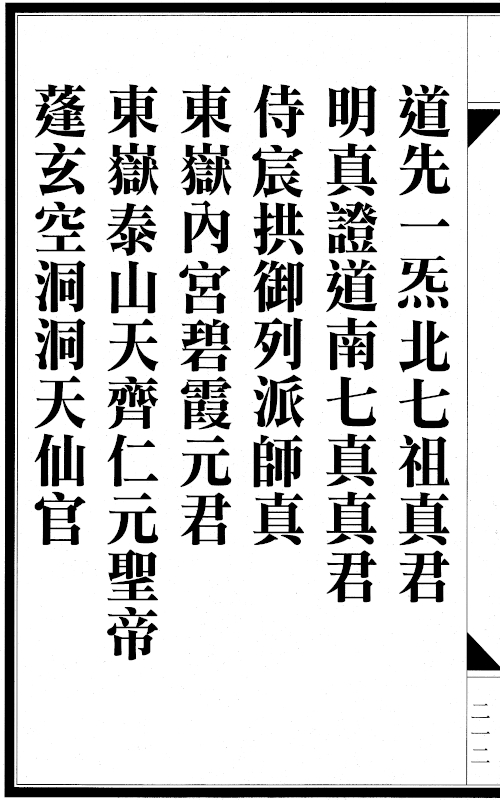 道先一炁北七祖真君
明真證道南七真真君
侍宸拱御列派師真
東嶽內宮碧霞元君
東嶽泰山天齊仁元聖帝
蓬玄空洞洞天仙官
二一二